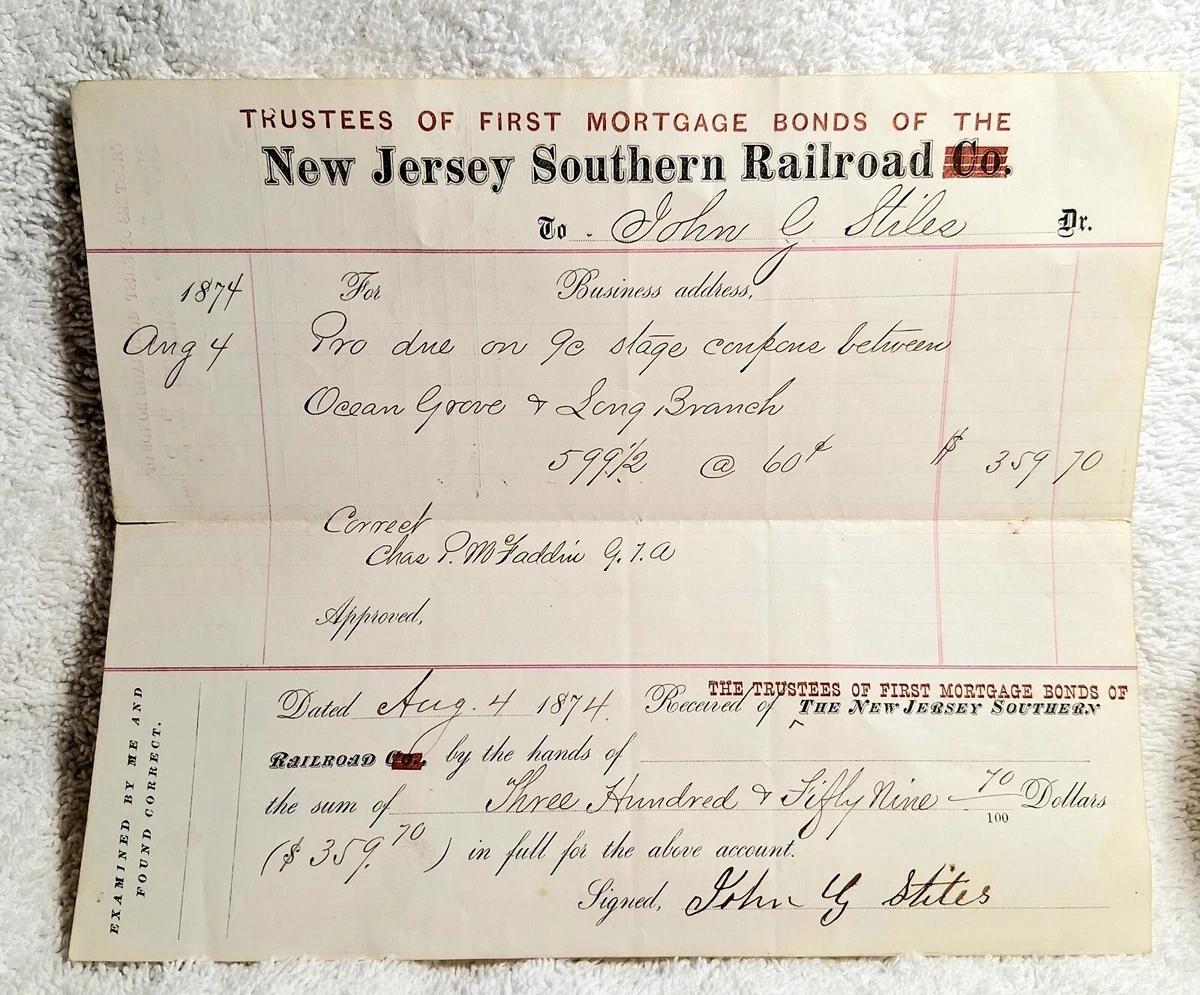 TRUSTEES OF FIRST MORTGAGE BONDS OF THE
New Jersey Southern Railroad Co.
To John G Stiles Dr.
1874 For Business address,
Aug 4 Pro due on 9c stage coupons between
Ocean Grove & Long Branch
599 1/2 @ 60¢ $ 359 70
Correct
Chas P. McFaddin G.T.A
Approved,
Dated Aug. 4 1874. Received of THE TRUSTEES OF FIRST MORTGAGE BONDS OF
THE NEW JERSEY SOUTHERN
RAILROAD CO., by the hands of
the sum of Three Hundred & Fifty Nine 70/100 Dollars
($ 359.70) in full for the above account.
Signed, John G Stiles
EXAMINED BY ME AND
FOUND CORRECT.